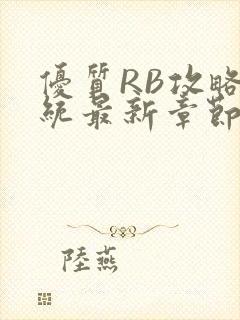 優質RB攻略
統最新章節
陸燕